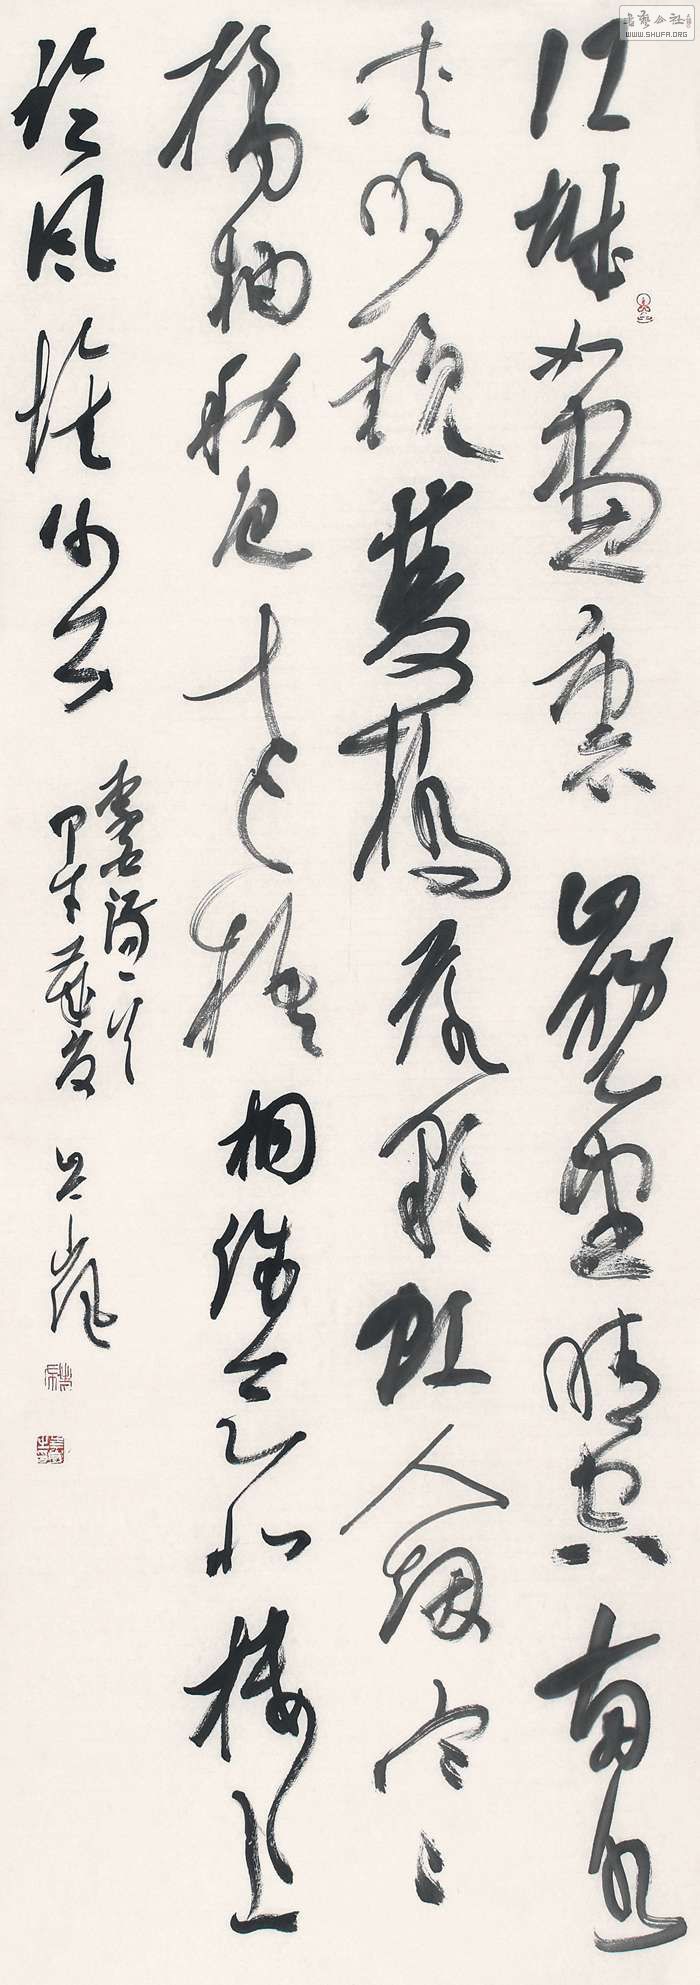 江城如畫裏山晚望晴空兩水
夾明鏡雙橋落彩虹人煙寒
橘柚秋色老梧桐誰念北樓上
臨風懷謝公
李白詩一首
甲午
書藝公社
WWW.SHUFA.ORG